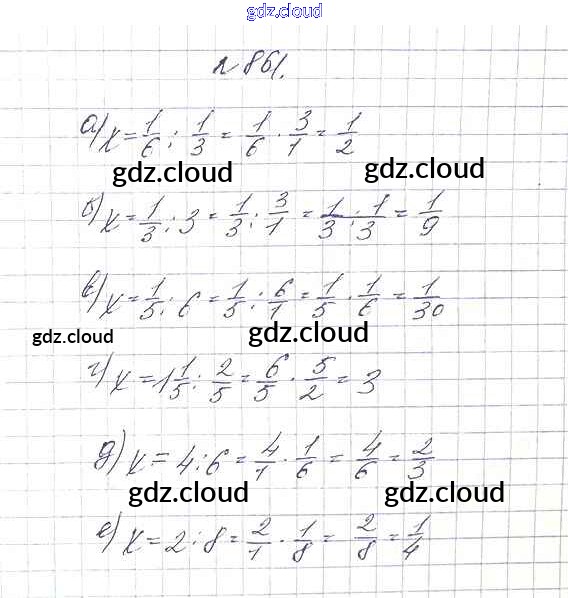 gdz.cloud
№ 861.
а) x = 1/6 : 1/3 = 1/6 · 3/1 = 1/2
gdz.cloud gdz.cloud
б) x = 1/3 : 3 = 1/3 : 3/1 = 1/3 · 1/3 = 1/9
gdz.cloud gdz.cloud
в) x = 1/5 : 6 = 1/5 : 6/1 = 1/5 · 1/6 = 1/30
gdz.cloud gdz.cloud
г) x = 1 1/5 : 2/5 = 6/5 · 5/2 = 3
д) x = 4 : 6 = 4/1 · 1/6 = 4/6 = 2/3
gdz.cloud gdz.cloud
е) x = 2 : 8 = 2/1 · 1/8 = 2/8 = 1/4